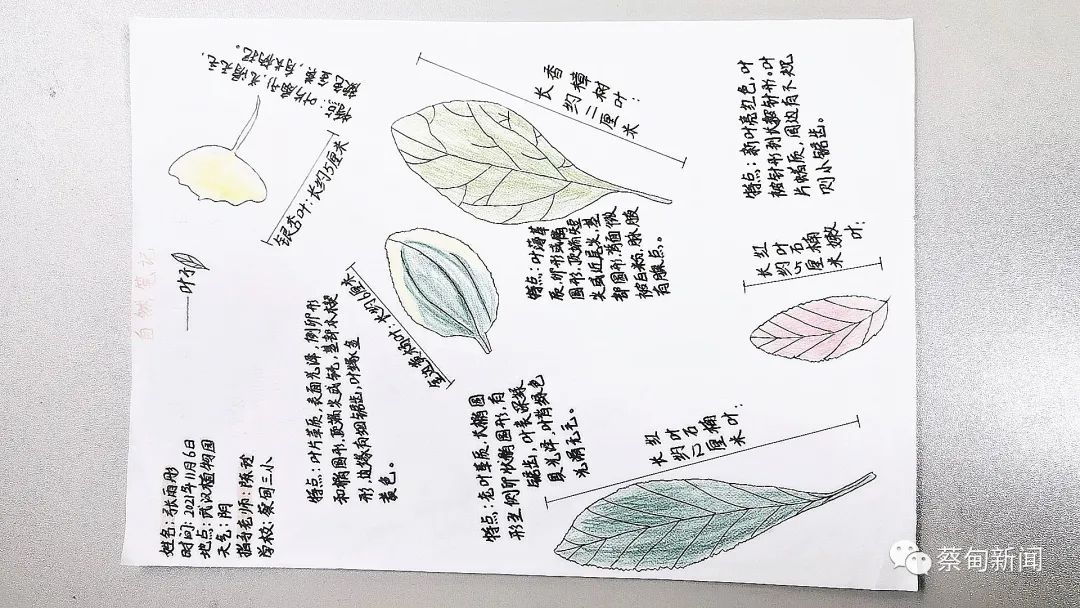 自然笔记
——叶子
姓名:张雨彤
时间:2021年11月6日
地点:武汉植物园
天气:阴
指导老师:陈
学校:蔡甸三小
银杏叶:长约5厘米
香樟树叶:
长约二厘米
特点:叶薄革
质,卵形或椭
圆形,顶端短
尖或近尾尖,基
部圆形,两面微
被白粉,脉腋
有腺点。
金边黄杨叶:长约6厘米
特点:叶片革质,表面光泽,倒卵形
和椭圆形,顶端尖或钝,基部木楔
形,边缘有细锯齿,叶缘金
黄色。
红叶石楠嫩叶:
长约厘米
特点:新叶亮红色,叶
披针形到长披针形,叶
片蜡质,周边有不规
则小锯齿。
红叶石楠叶:
长约厘米
特点:老叶革质,长椭圆
形至倒卵状椭圆形,有
锯齿,叶表深绿
具光泽,叶背绿色
光滑无毛。
蔡甸新闻